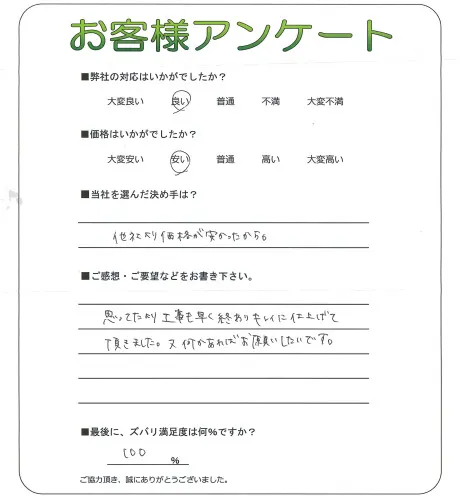 お客様アンケート
■弊社の対応はいかがでしたか？
大変良い 良い 普通 不満 大変不満
■価格はいかがでしたか？
大変安い 安い 普通 高い 大変高い
■当社を選んだ決め手は？
他社より価格が安かったから。
■ご感想・ご要望などをお書き下さい。
思ってたより工事も早く終わりキレイに仕上げて
頂きました。又何かあればお願いしたいです。
■最後に、ズバリ満足度は何％ですか？
100 %
ご協力頂き、誠にありがとうございました。